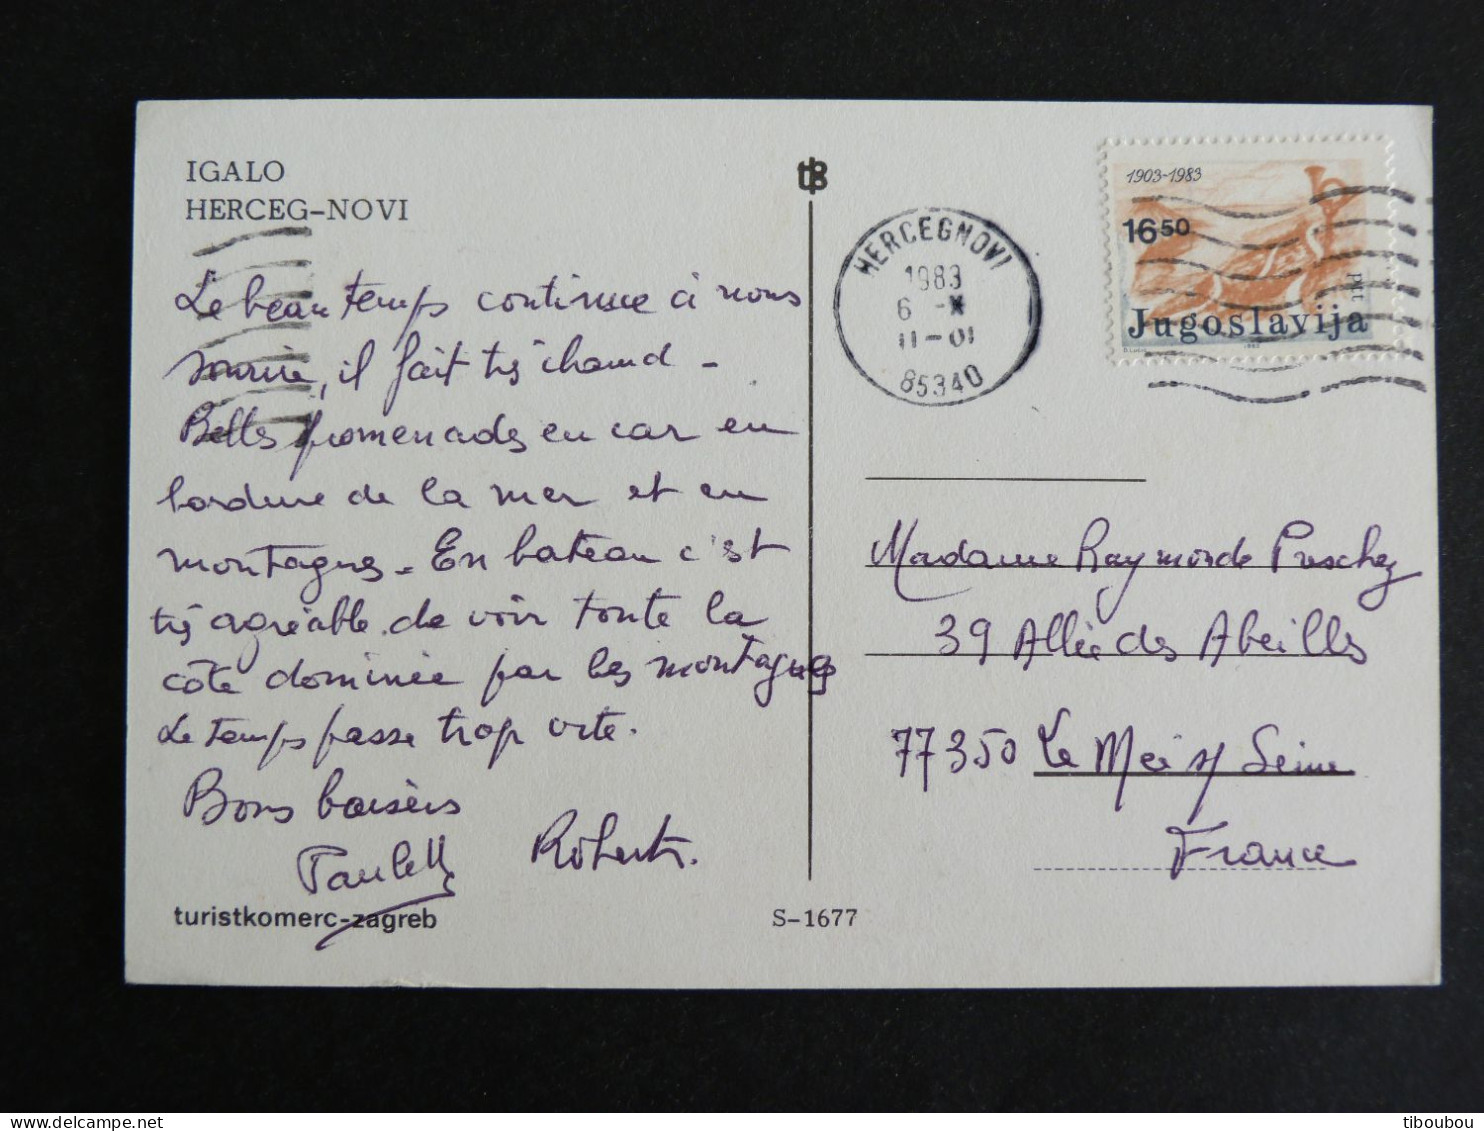 IGALO
HERCEG-NOVI
Le beau temps continue à nous
sourire, il fait très chaud -
Belles promenades en car en
bordure de la mer et en
montagnes - En bateau c'est
très agréable de voir toute la
côte dominée par les montagnes
Le temps passe trop vite.
Bons baisers
Paulette Robert.
turistkomerc-zagreb
S-1677
HERCEGNOVI
1983
6 -X
11-01
85340
1903-1983
16 50
ptt
Jugoslavija
Madame Raymonde Preschez
39 Allée des Abeilles
77350 Le Mée s/ Seine
France
tiboubou